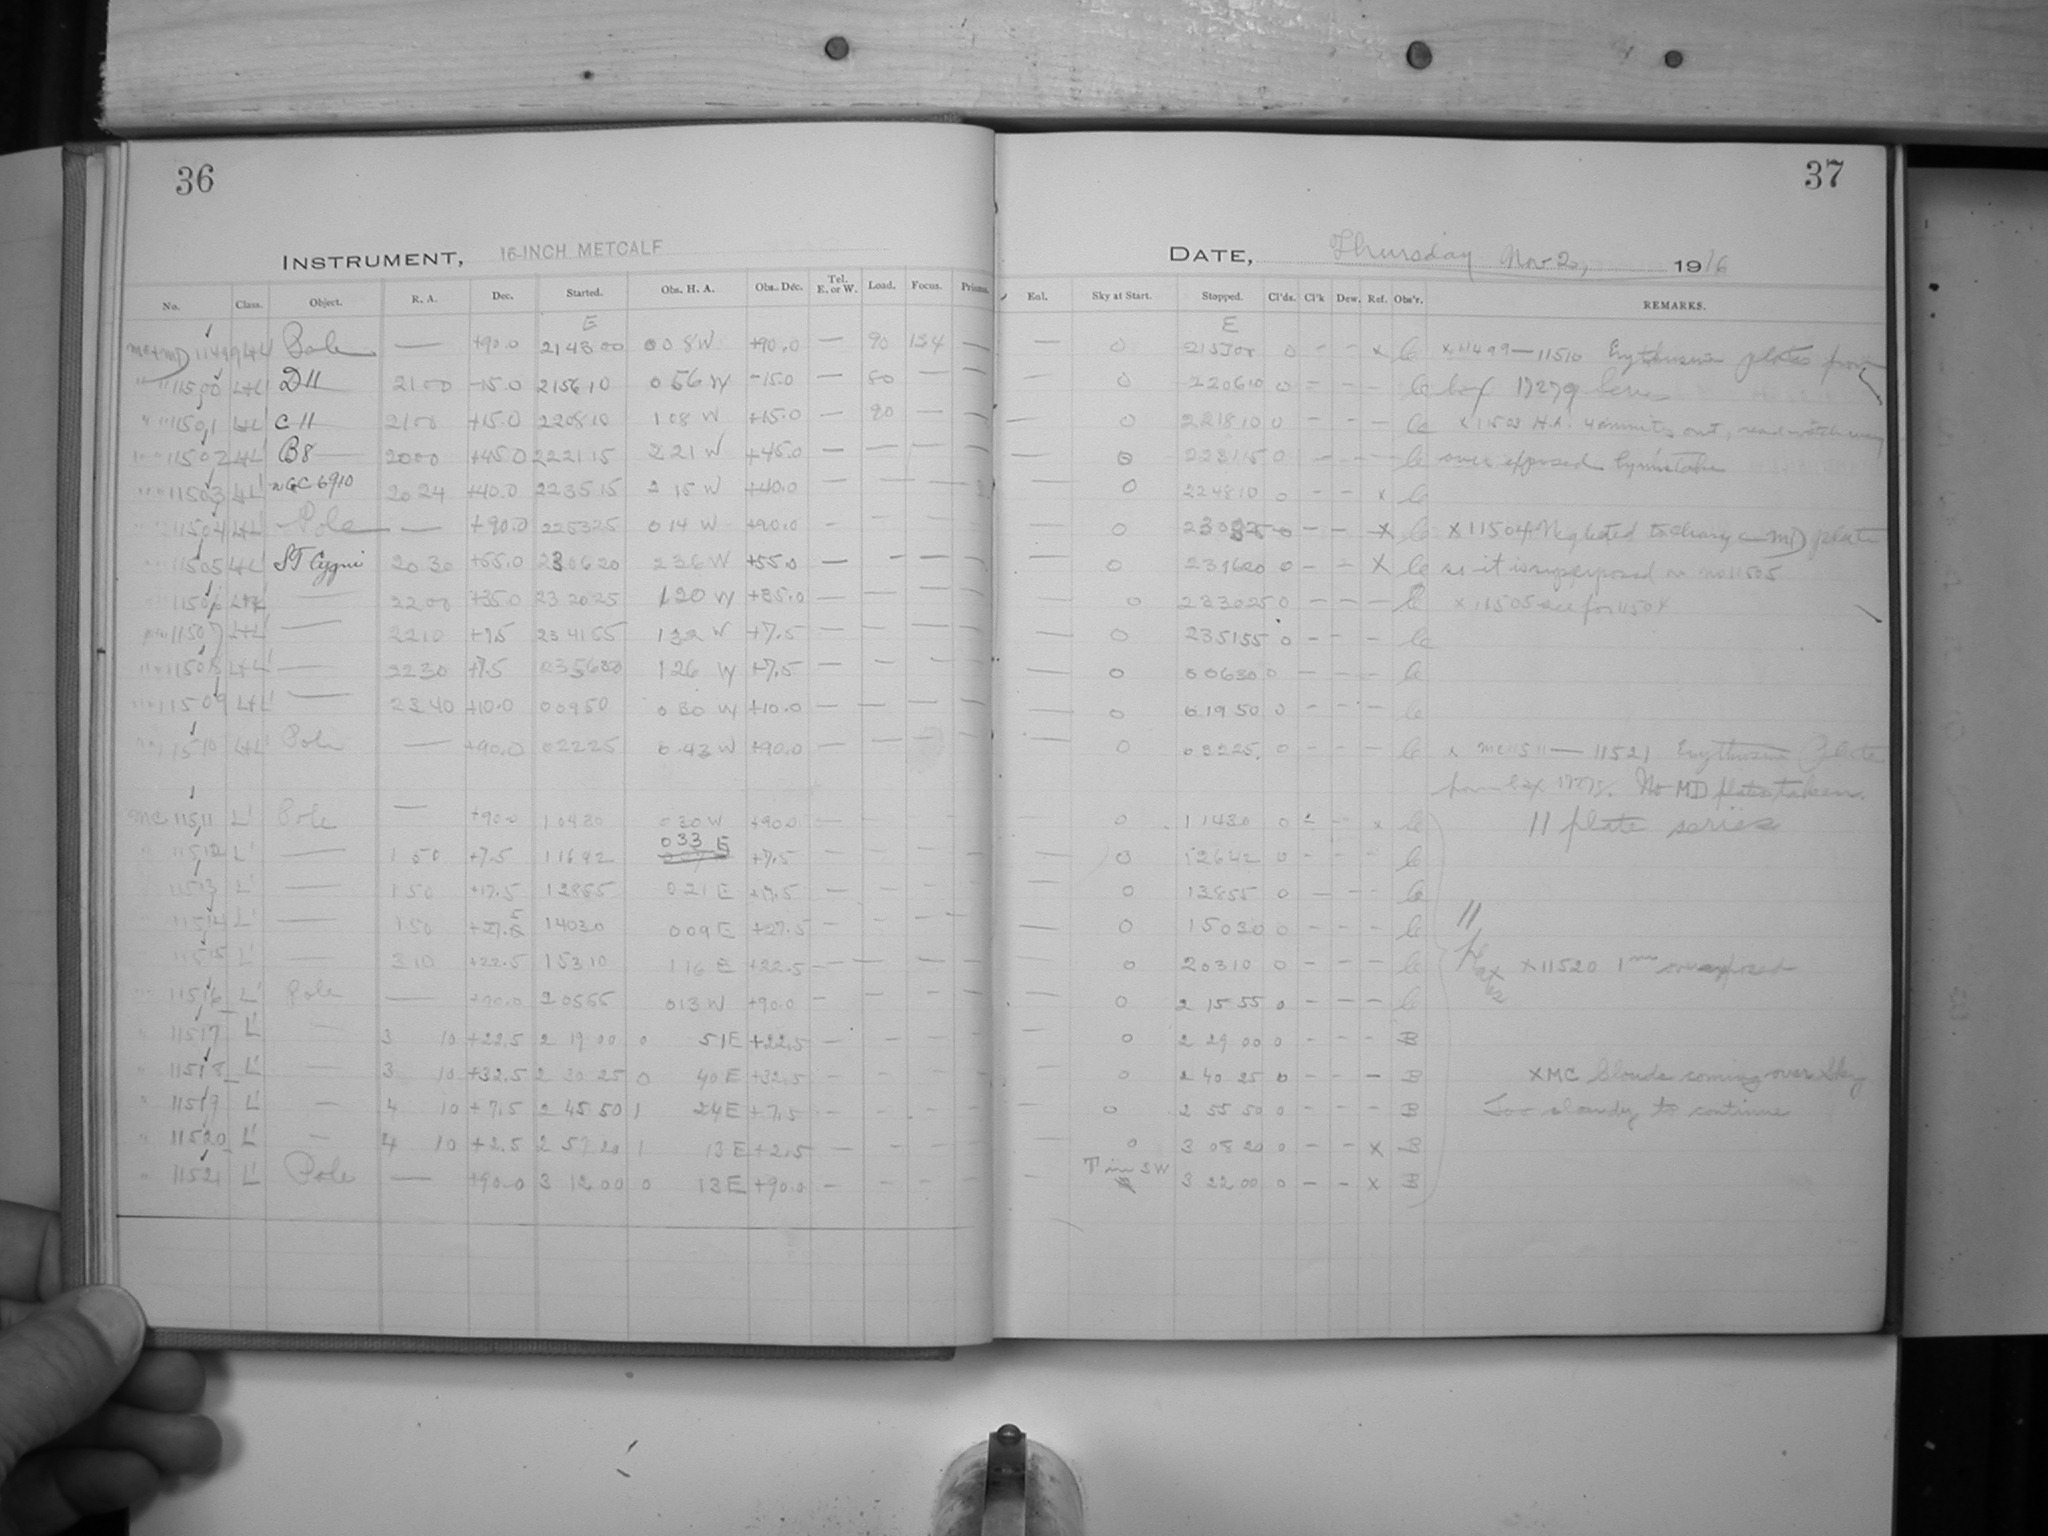 36
37
INSTRUMENT, 16-INCH METCALF
DATE, Thursday Nov 2, 1916
No. Class. Object. R. A. Dec. Started. Obs. H. A. Obs. Dec. Tel. E. or W. Load. Focus. Prisms. Eol. Sky at Start. Stopped. Cl'ds. Cl'k Dew. Ref. Obs'r. REMARKS.
E E
MC+MD 11499 L+L' Pole — +90.0 214300 008W +90.0 — 90 — O 0 – – x
" " 11500 L+L' D11 2100 -15.0 215610 056W -15.0 — 80 — O 220610 0 – – – box 17279
" " 11501 L+L' C11 2100 +15.0 220810 108W +15.0 — 90 — — — O 221810 0 – – – x 11503 H.A. 4 minutes out,
" " 11502 L+L' B8 2000 +45.0 222115 221W +45.0 — — — — — 223115 0 – – – over exposed by mistake
" " 11503 L+L' NGC 6910 2024 +40.0 223515 215W +40.0 — — — O 224810 0 – – x
" " 11504 L+L' Pole — +90.0 225325 014W +90.0 — — — — O 0 – – x x 11504 Neglected to change MD plate
11505 L+L' ST Cygni 2030 +55.0 230620 236W +55.0 — — — — — O 231620 0 – – x so it is superposed on no 11505
11506 L+L' — 2200 +35.0 232025 120W +35.0 — — — — — O 233025 0 – – – x 11505 see for 11504
11507 L+L' — 2210 +7.5 234155 132W +7.5 — — — — — O 235155 0 – – –
11508 L+L' — 2230 +7.5 235630 126W +7.5 — — — — — O 00630 0 – – –
11509 L+L' — 2340 +10.0 00950 030W +10.0 — — — — — O 01950 0 – – –
11510 L+L' Pole — +90.0 02225 043W +90.0 — — — — — O 0 – – – x MC 11511 — 11521 Erythrosin Plates
from box No MD plates taken.
MC 11511 L' Pole — +90.0 10430 030W +90.0 — — — — — O 11430 0 – – x 11 plate series
033 E
" 11512 L' — 150 +7.5 11642 +7.5 — — — — — O 12642 0 – –
11513 L' — 150 +17.5 12855 021E +17.5 — — — — — O 13855 0 – – –
11514 L' — 150 +27.5 14030 009E +27.5 — — — — — O 15030 0 – – – 11
11515 L' — 310 +22.5 15310 116E +22.5 — — — — — O 20310 0 – – – plates x 11520 1m overexposed
11516 L' Pole — +90.0 20555 013W +90.0 — — — — — O 2 15 55 0 – – –
" 11517 L' — 3 10 +22.5 2 19 00 0 51E +22.5 — — — — — O 2 29 00 0 – – – B
" 11518 L' — 3 10 +32.5 2 30 25 0 40E +32.5 — — — — — O 2 40 25 0 – – – B x MC Clouds coming over Sky
" 11519 L' — 4 10 +7.5 2 45 50 1 24E +7.5 — — — — — O 2 55 50 0 – – – B Too cloudy to continue
" 11520 L' — 4 10 +2.5 2 57 20 1 13E +2.5 — — — — — O 3 08 20 0 – – x B
T in SW
" 11521 L' Pole — +90.0 3 12 00 0 13E +90.0 — — — — — 3 22 00 0 – – x B